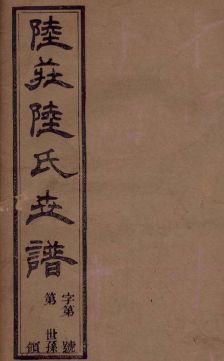 陸莊陸氏世譜
字第 號
第 世孫 領